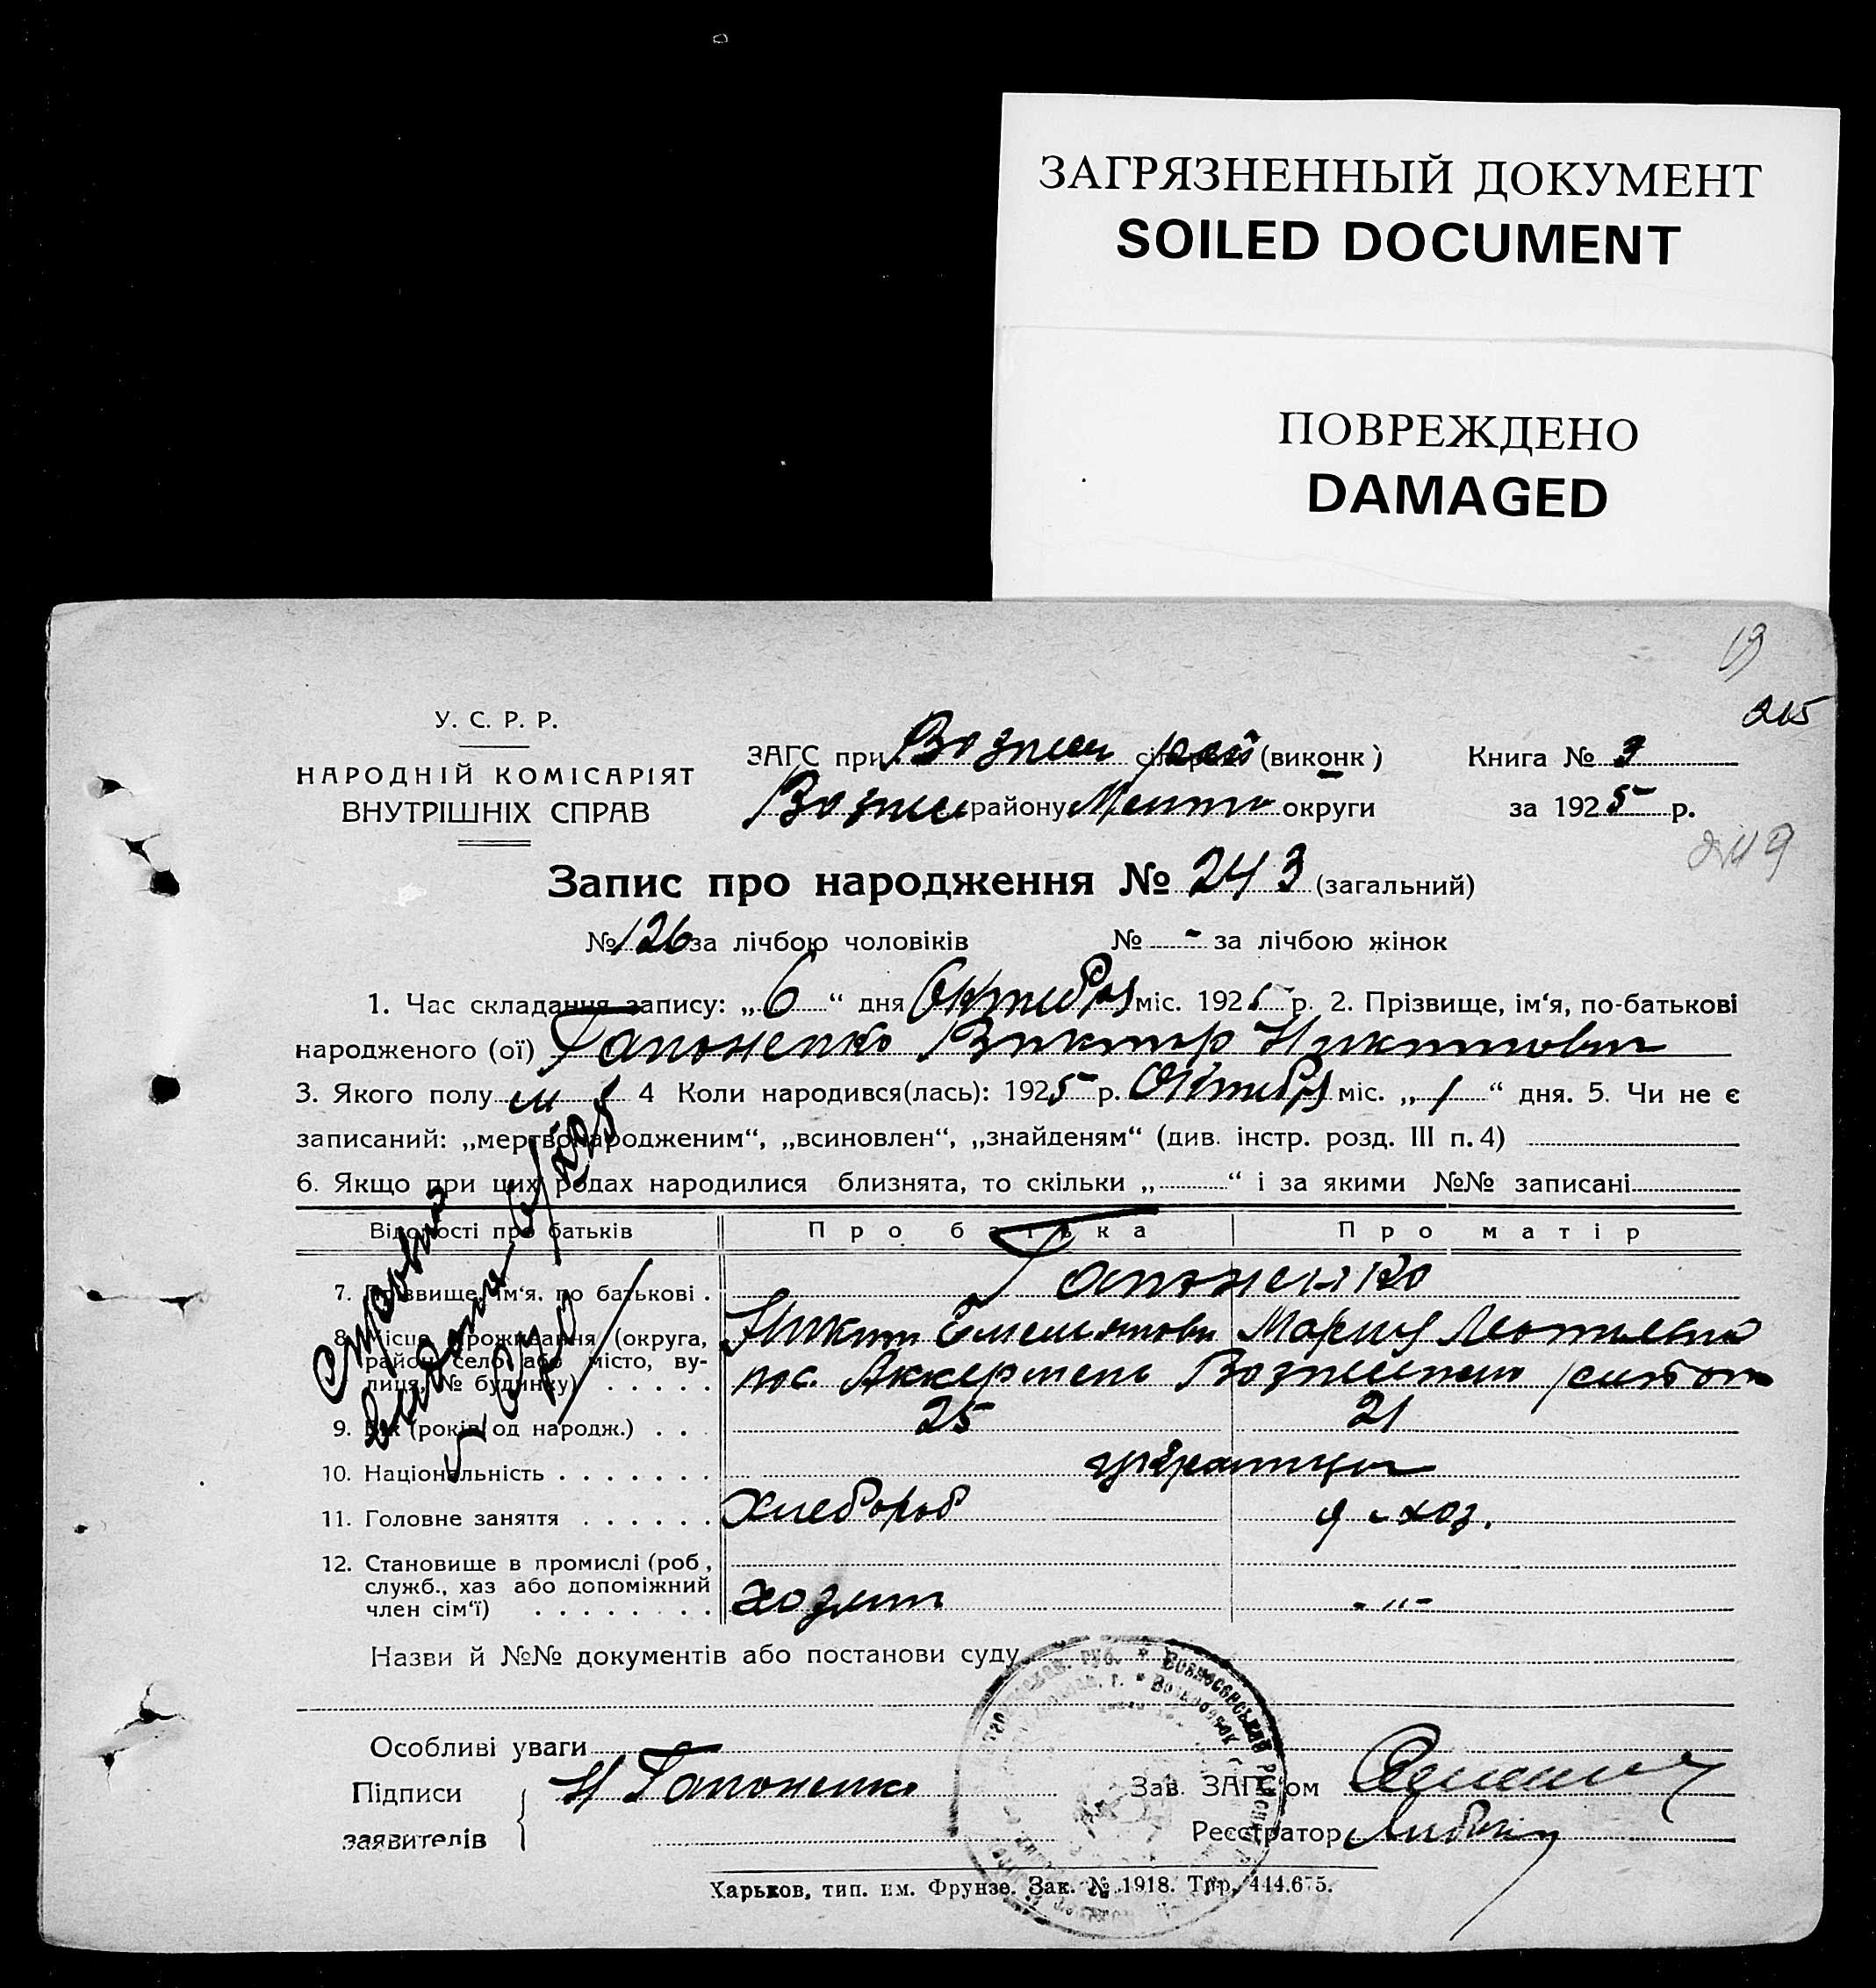 ЗАГРЯЗНЕННЫЙ ДОКУМЕНТ
SOILED DOCUMENT
ПОВРЕЖДЕНО
DAMAGED
19
215
У. С. Р. Р.
НАРОДНІЙ КОМІСАРІЯТ
ВНУТРІШНІХ СПРАВ
ЗАГС при Вознесен рай (виконк)
Вознес району Мелито округи
Книга № 3
за 1925 р.
Запис про народження № 243 (загальний)
№ 126 за лічбою чоловіків № - за лічбою жінок
1. Час складання запису: „ 6 “ дня Октября міс. 1925 р. 2. Прізвище, ім‘я, по-батькові
народженого (ої) Гапоненко Виктор Никитович
3. Якого полу м 4 Коли народився(лась): 1925 р. Октября міс. „ 1 “ дня. 5. Чи не є
записаний: „мертвонародженим“, „всиновлен“, „знайденям“ (див. інстр. розд. III п. 4)
6. Якщо при цих родах народилися близнята, то скільки „ “ і за якими №№ записані
Відомості про батьків Про батька Про матір
7. Прізвище, ім‘я, по батькові . Гапоненко
Никит Емельянови Мария Леонтьевна
8. Місце проживання (округа,
район село або місто, ву-
лиця, № будинку) . . . . . пос. Аккермень
9. Вік (років од народж.) . . . 25 21
10. Національність . . . . . . . украинцы
11. Головне заняття . . . . . . Хлебороб д-хоз.
12. Становище в промислі (роб,
служб., хаз або допоміжний
член сім‘ї) . . . . . . . . хозяин - „ -
Назви й №№ документів або постанови суду
Особливі уваги
Підписи
заявителів
Н Гапоненко
Зав. ЗАГС‘ом
Реєстратор
Харьков, тип. им. Фрунзе. Зак. № 1918. Тир. 444.675.